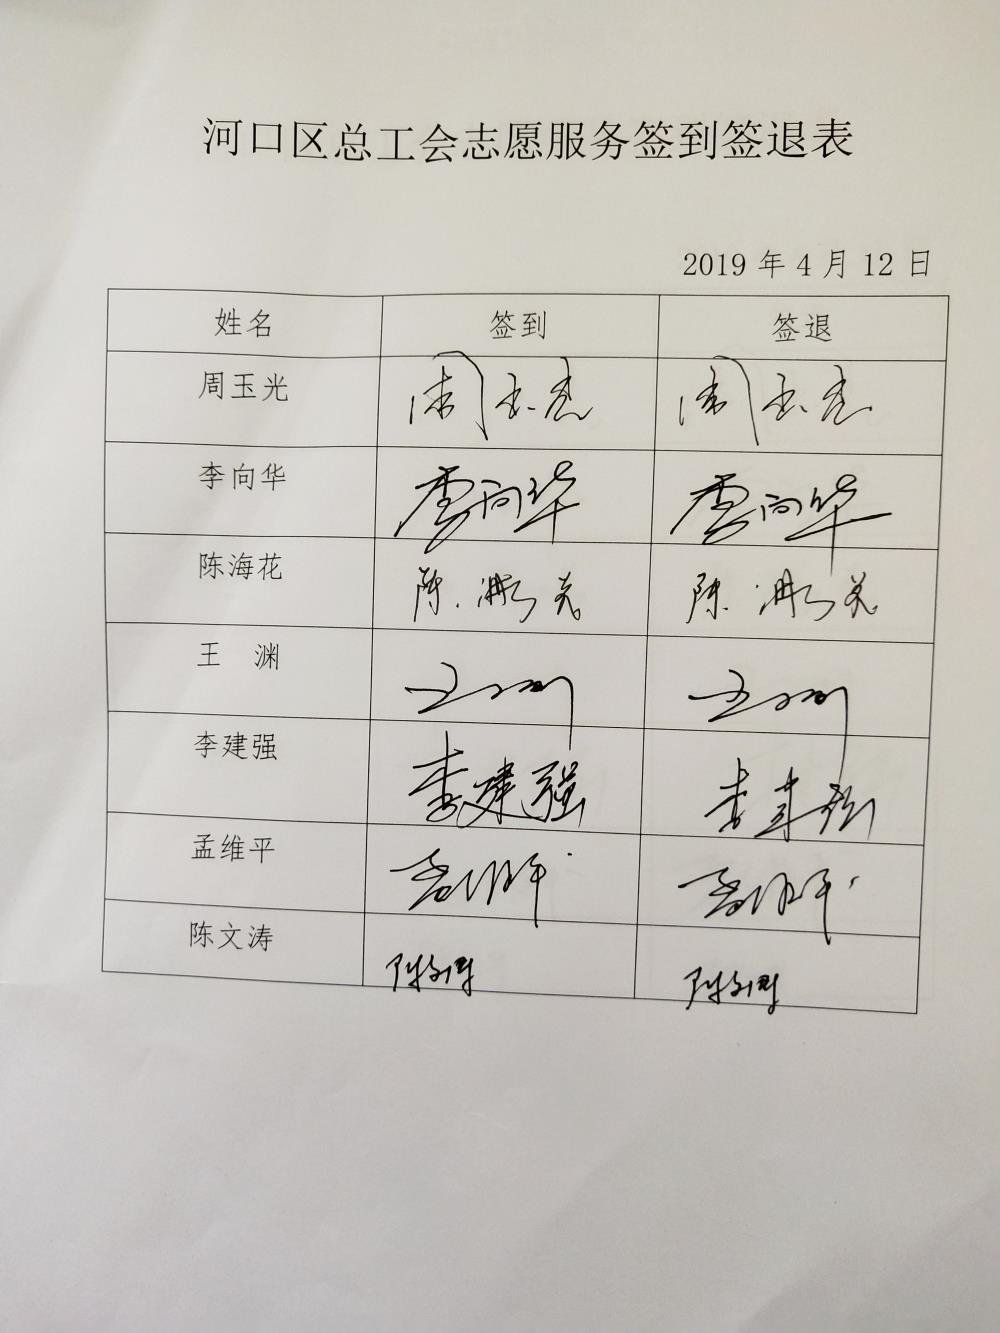 河口区总工会志愿服务签到签退表
2019年4月12日
姓名 签到 签退
周玉光 周玉光 周玉光
李向华 李向华 李向华
陈海花 陈海花 陈海花
王 渊 王渊 王渊
李建强 李建强 李建强
孟维平 孟维平 孟维平
陈文涛 陈文涛 陈文涛